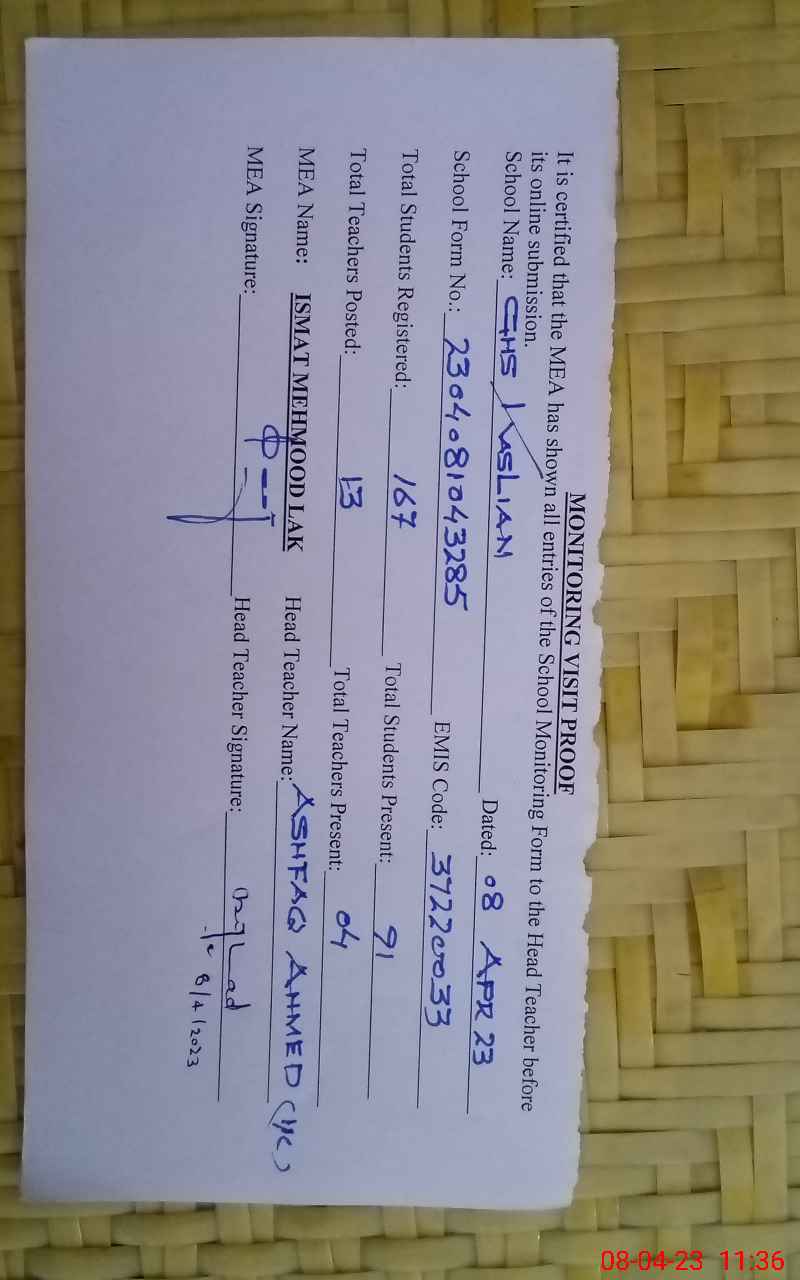 MONITORING VISIT PROOF
It is certified that the MEA has shown all entries of the School Monitoring Form to the Head Teacher before
its online submission.
School Name: GHS KASLIAN Dated: 08 APR 23
School Form No.: 2304081043285 EMIS Code: 37220033
Total Students Registered: 167 Total Students Present: 91
Total Teachers Posted: 13 Total Teachers Present: 04
MEA Name: ISMAT MEHMOOD LAK Head Teacher Name: ASHFAQ AHMED (I/C)
MEA Signature: Head Teacher Signature:
I/C 8/4/2023
08-04-23 11:36